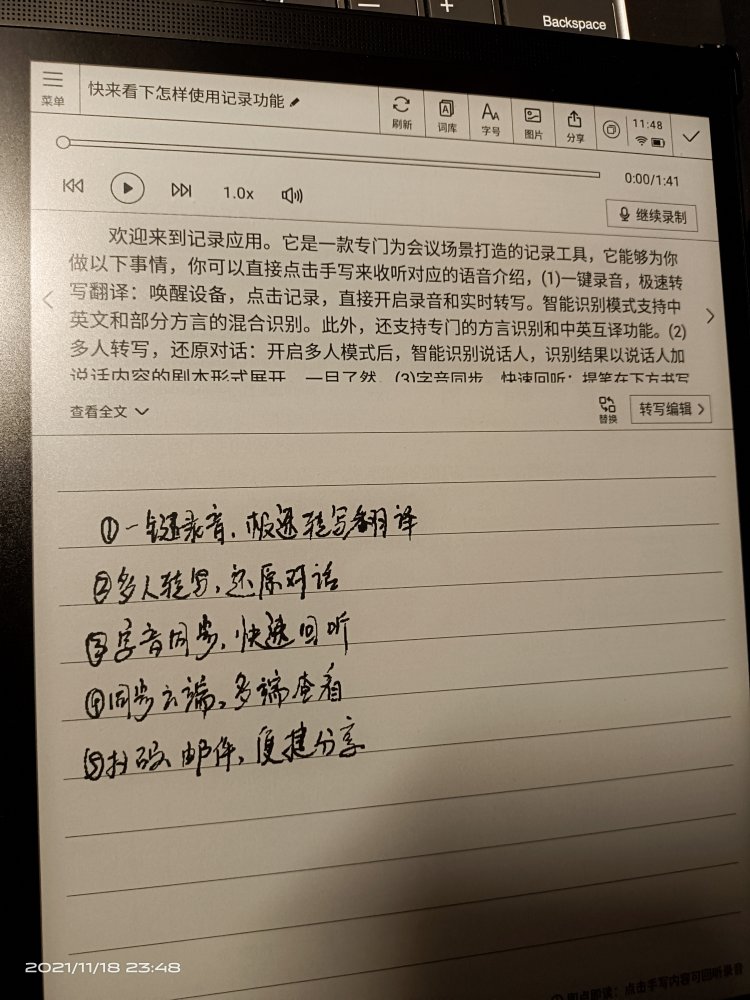 Backspace
菜单
快来看下怎样使用记录功能
刷新
词库
字号
图片
分享
11:48
0:00/1:41
1.0x
继续录制
欢迎来到记录应用。它是一款专门为会议场景打造的记录工具，它能够为你
做以下事情，你可以直接点击手写来收听对应的语音介绍，(1)一键录音，极速转
写翻译：唤醒设备，点击记录，直接开启录音和实时转写。智能识别模式支持中
英文和部分方言的混合识别。此外，还支持专门的方言识别和中英互译功能。(2)
多人转写，还原对话：开启多人模式后，智能识别说话人，识别结果以说话人加
说话内容的剧本形式展开，一目了然。(3)字音同步，快速回听：提笔在下方书写
查看全文
替换
转写编辑
①一键录音，极速转写翻译
②多人转写，还原对话
③字音同步，快速回听
④同步云端，多端查看
⑤扫码邮件，便捷分享
点击手写内容可回听录音
2021/11/18 23:48